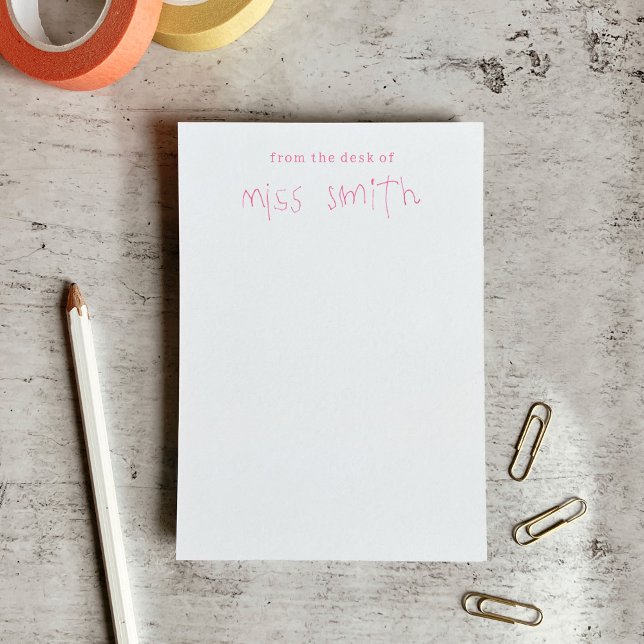 from the desk of
miss smith